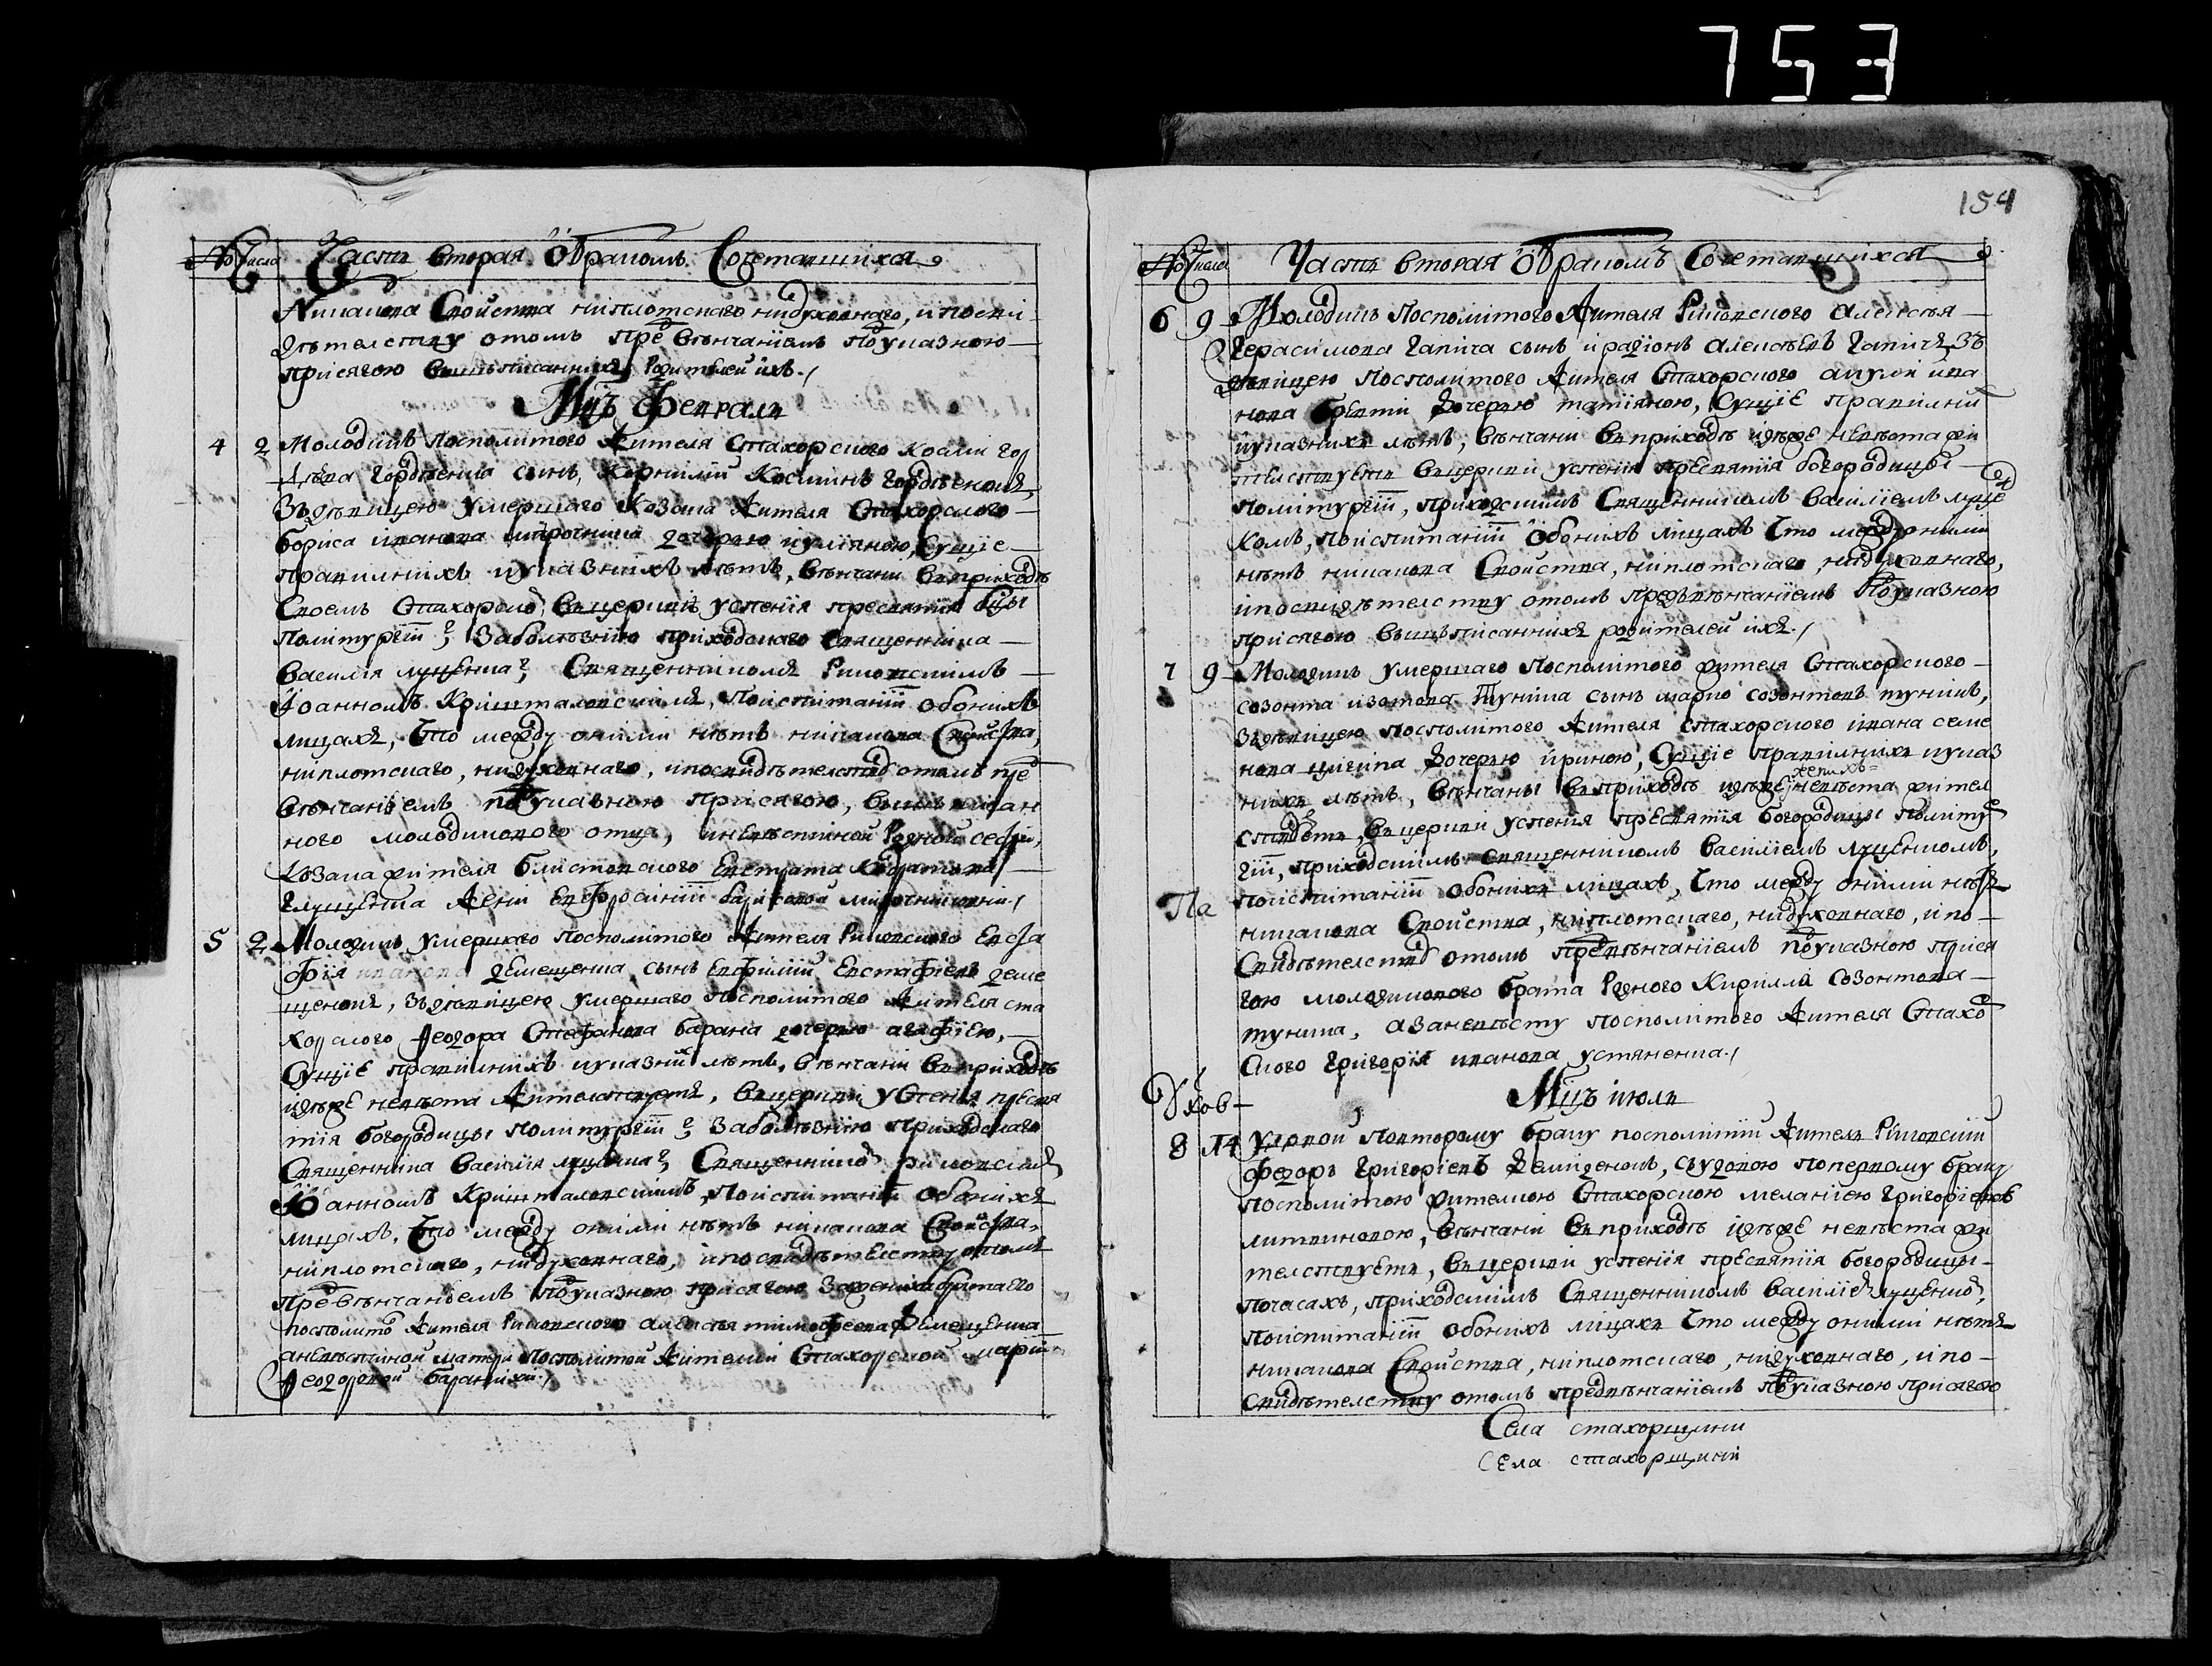 753
154
№ Числа Часть вторая ѽ бракомъ Сочетавшихся
Никакова Свойства ниплотскаго нидуховнаго, ипосви
дѣтелству отомъ пред вѣнчаніемъ поуказною
присягою вышъписанних родителей ихъ./
Мцъ февраль
4 2 Молодикъ посполитого жителя Стахорского Косми гор
дѣева гордѣенка синъ, Корнилий Косминъ гордѣенокъ,
Здѣвицею умершаго Козака жителя Стахорского
бориса иванова мирочника дочерью иулияною, Сущіе
правилнихъ иуказнихъ лѣтъ, вѣнчани вприходѣ
Своемъ Стахорско, вцеркви успенія пресвятія бцы
политургіи, заболѣзнію приходскаго священника
василія луценка, Священникомъ Риковскимъ
Іоанномъ Кришталовскимъ, поиспитаніи обоихъ
лицахъ, Что между оними нѣтъ никакова Свойства,
ниплотскаго, нидуховнаго, ипосвидѣтелству отомъ пред
вѣнчаніемъ поуказною присягою, вишъписан
ного молодикового отца, иневѣстиной Родной сестри,
Козака жителя блистовского Евстрата Кодратова
глущенка жени Евфросиніи борисовой мирочниковни./
5 2 Молодикъ умершаго посполитого жителя Риковского Евста
фія иванова демещенка синъ Евфимій Евстафіевъ деме
щенокъ, здѣвицею умершаго посполитого жителя ста
хорского Феодора Стефанова барана дочерью агафіею,
Сущіе правилнихъ иуказних лѣтъ, вѣнчани вприходѣ
идѣже невѣста жителствуетъ, вцеркви успенія пресвя
тія богородицы политургіи, Заболѣзнію приходскаго
Священника василія луценка, Священником риковским
Іоанномъ Кришталовскимъ, поиспитаніи обоихъ
лицахъ, Что между оними нѣтъ никакова Свойства,
ниплотскаго, нидуховнаго, ипосвидѣтелству отомъ
предвѣнчаніемъ поуказною присягою зажениха брата его
посполито жителя Риковского алексѣя тимофеева Демещенка
аневѣстиной матери посполитой жителки Стахорской марии
Феодоровой баранихи./
№ Числа Часть вторая ѽ бракомъ Сочетавшихся
6 9 Молодикъ посполитого жителя Риковского алексѣя
Герасимова синъ иродіонъ алексѣевъ зъ
дѣвицею посполитого жителя Стахорского ива
нова дочерью татіяною, Сущіе правилних
иуказнихъ лѣтъ, вѣнчани вприходѣ идѣже невѣста жи
телствуетъ вцеркви успенія пресвятія богородицы
политургіи, приходскимъ Священникомъ василіемъ луце
комъ, поиспитаніи обоихъ лицахъ Что между оними
нѣтъ никакова Свойства, ниплотскаго, нидуховнаго,
ипосвидѣтелству отомъ предвѣнчаніемъ поуказною
присягою вышъписанних родителей ихъ./
7 9 Молодикъ умершаго посполитого жителя Стахорского
созонта изотова туника синъ марко созонтовъ туникъ,
здѣвицею посполитого жителя стахорского ивана семе
нова дочерью ириною, Сущіе правилнихъ иуказ
нихъ лѣтъ, вѣнчаны вприходѣ идѣже женихъ невѣста жител
ствуетъ, вцеркви успенія пресвятія богородицы политу
гіи, приходскимъ священникомъ василіемъ луценкомъ,
поиспитаніи обоихъ лицахъ, Что между оними нѣтъ
Па никакова Свойства, ниплотскаго, нидуховнаго, ипо
Свидѣтелству отомъ предвѣнчаніемъ поуказною прися
гою молодикового брата Родного Кирилла Созонтова
туника, азаневѣсту посполитого жителя Стахо
ского Григорія иванова устяненка./
Мцъ июль
8 14 Удовой повторому браку посполитій жителъ Риковскій
федоръ григоріевъ Демиденокъ, сзудовою поперному браку
посполитою жителкою Стахорскою меланіею Григоріевою
литвиновою, вѣнчани вприходѣ идѣже невѣста жи
телствуетъ, вцеркви успенія пресвятія богородицы
почасахъ, приходскимъ Священникомъ василіем луценко,
поиспитаніи обоихъ лицахъ Что между оними нѣтъ
никакова Свойства, ниплотскаго, нидуховнаго, ипо
Свидѣтелству отомъ предвѣнчаніемъ поуказною присягою
Села стахорщини
Села стахорщини